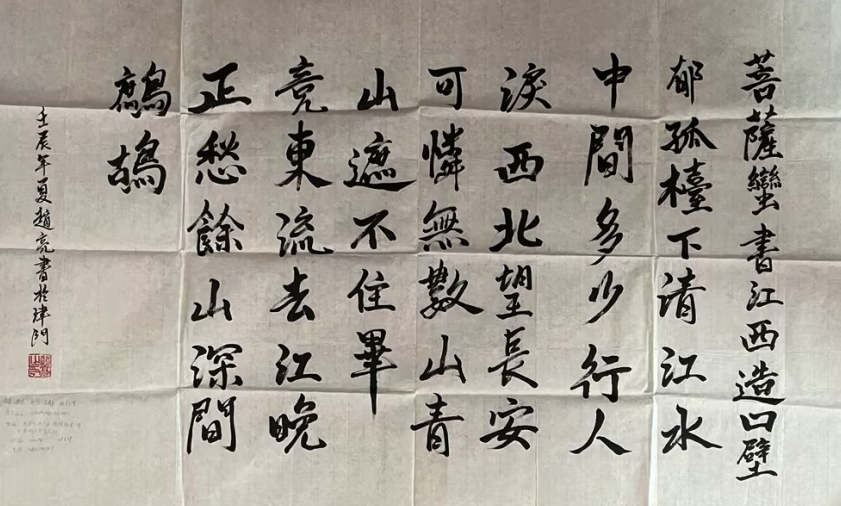 菩薩蠻書江西造口壁
郁孤檯下清江水
中間多少行人
淚西北望長安
可憐無數山青
山遮不住畢
竞東流去江晚
正愁餘山深間
鷓鴣
壬辰年夏趙亮書於津門